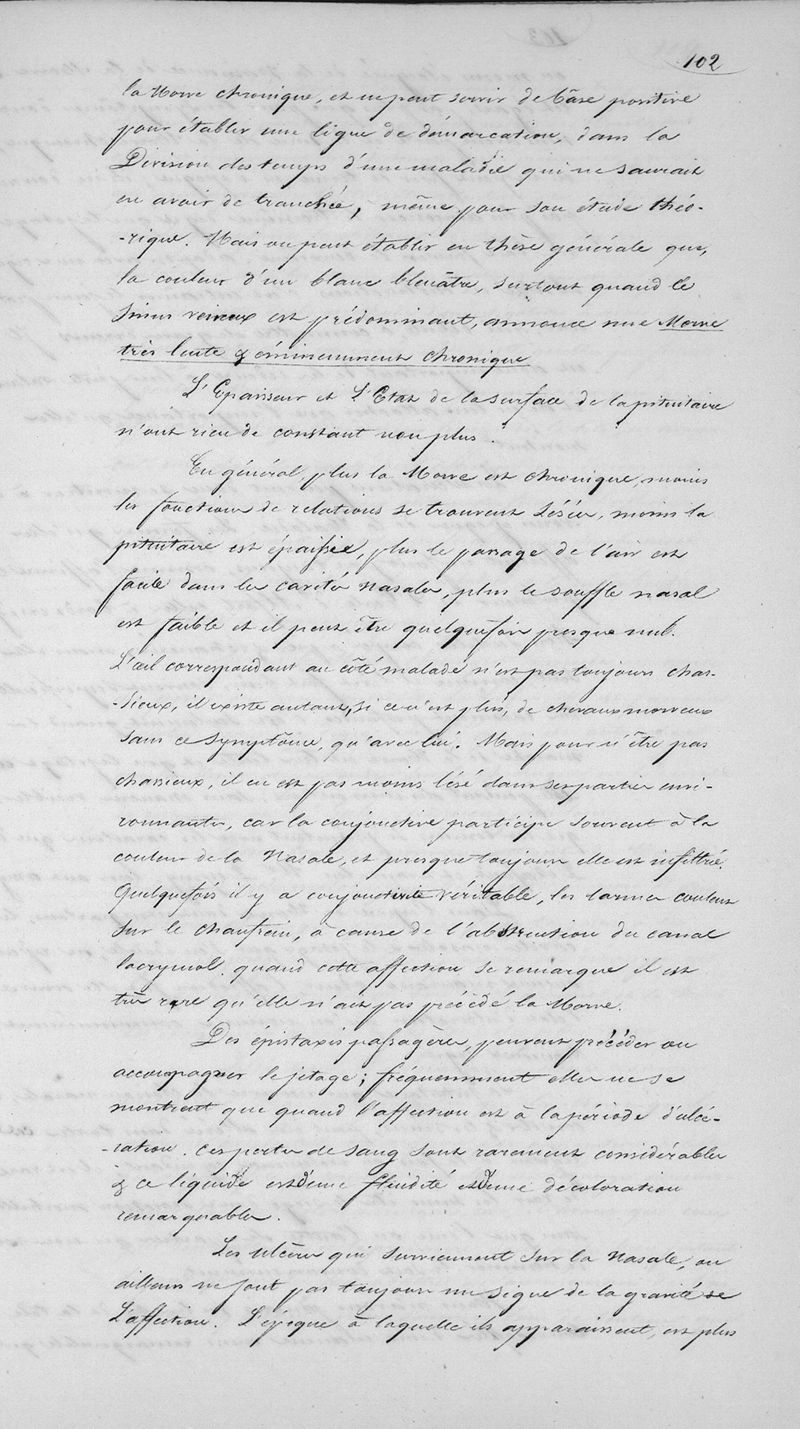 102
la Morve chronique, et ne peut servir de bâse positive
pour établir une ligne de démarcation, dans la
Division des temps d'une maladie qui ne saurait
en avoir de tranchée, même pour son étude théo-
-rique. Mais on peut établir en thèse générale que,
la couleur d'un blanc bleuâtre, surtout quand le
sinus veineux est prédominant, annonce une Morve
très lente & éminemment chronique
L'Epaisseur et L'Etat de la surface de la pituitaire
n'ont rien de constant non plus.
En général, plus la Morve est chronique, moins
les fonctions de relations se trouvent lésées, moins la
pituitaire est épaissie, plus le passage de l'air est
facile dans les cavités nasales, plus le souffle nasal
est faible et il peut être quelquefois presque nul.
L'œil correspondant au côté malade n'est pas toujours chas-
-sieux, il existe autant, si ce n'est plus, de chevaux morveux
sans ce symptôme, qu'avec lui. Mais pour n'être pas
chassieux, il en est pas moins lésé dans ses parties envi-
ronnantes, car la conjonctive participe souvent à la
couleur de la Nasale, et presque toujours elle est infiltrée.
Quelquefois il y a conjonctivite véritable, les larmes coulent
sur le chanfrein, à cause de l'abstruction du canal
lacrymal. quand cette affection se remarque il est
très rare qu'elle n'ait pas précédé la Morve.
Des épistaxis passagères, peuvent précéder ou
accompagner le jetage; fréquemment elles ne se
montrent que quand l'affection est à la période d'ulcé-
-ration. ces pertes de sang sont rarement considérables
& ce liquide est d'une fluidité et d'une décoloration
remarquables.
Les ulcères qui surviennent sur la Nasale, ou
ailleurs ne sont pas toujours un signe de la gravité de
L'affection. L'époque à laquelle ils apparaissent, est plus